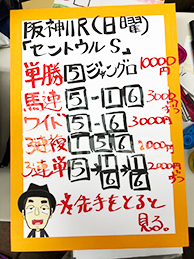 阪神11R(日曜)
「セントウルS」
単勝 5 ジャングロ 10000円
馬連 5-1 6 3000円ずつ
ワイド 5-6 3000円
3連複 1 5 6 2000円
3連単 5→1 6→1 6 2000円ずつ
先手をとると
見る。